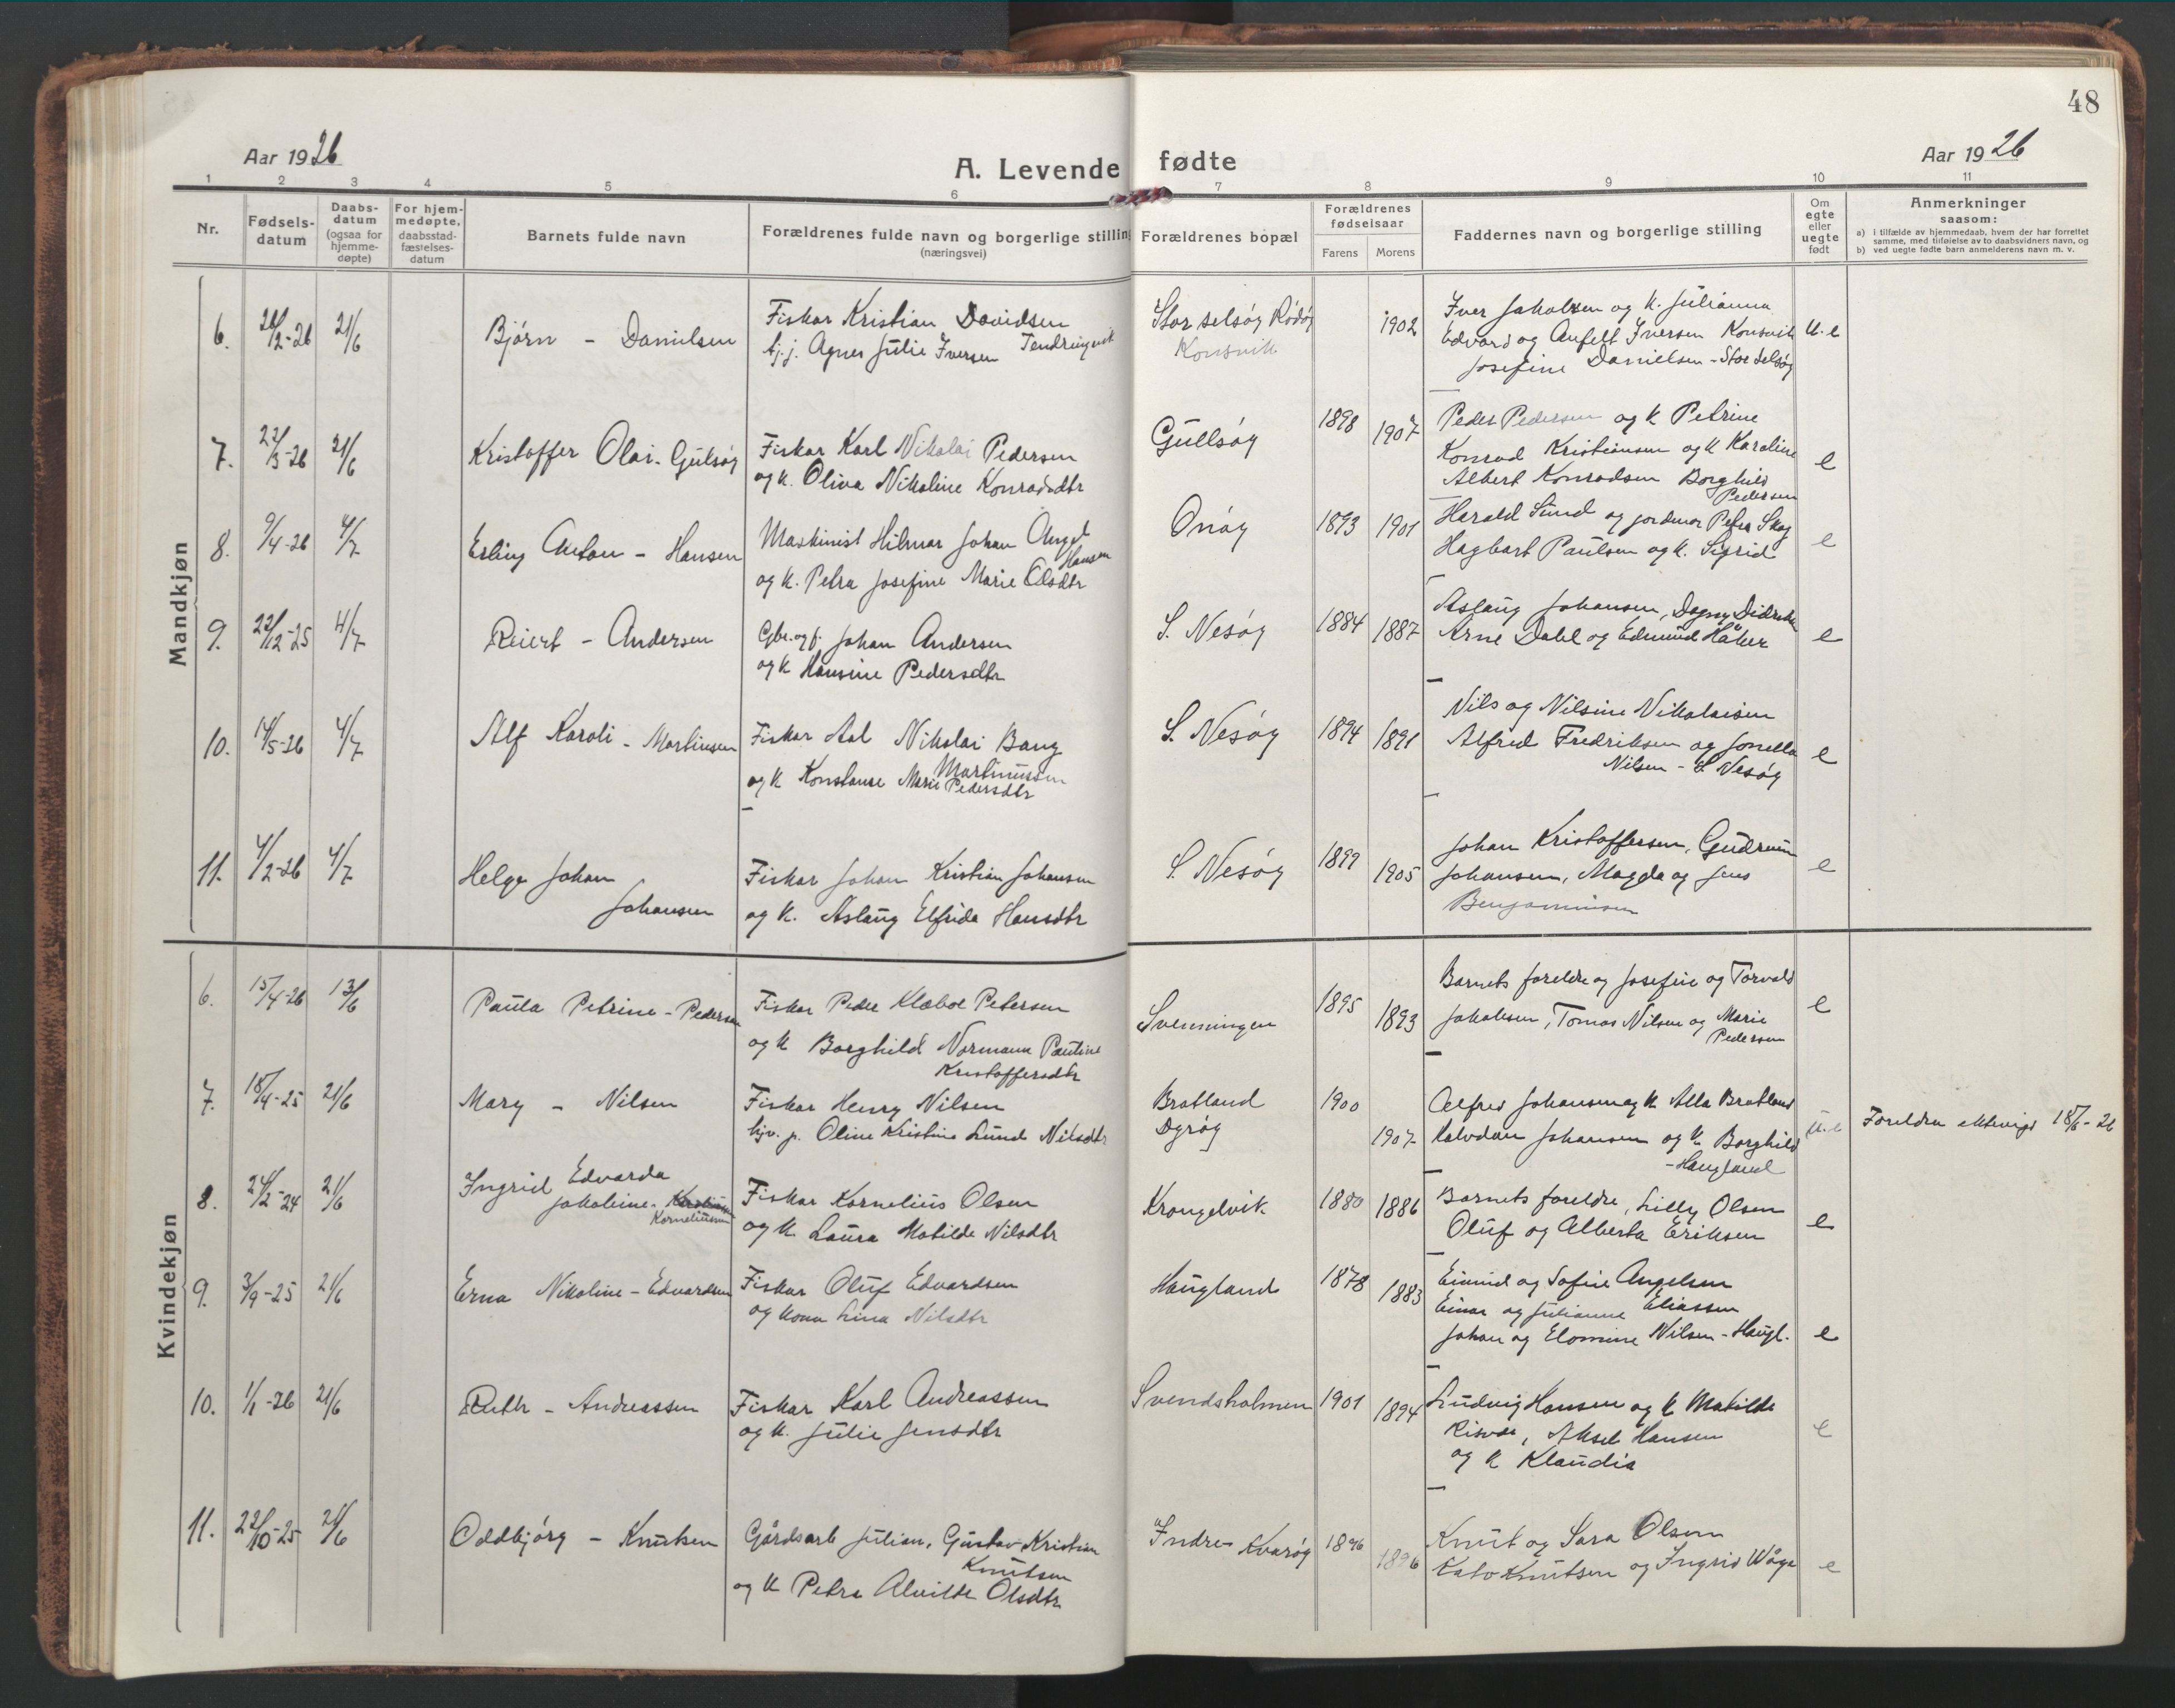 48
Aar 1926
A. Levende fødte
Aar 1926
1 2 3 4 5 6 7 8 9 10 11
Nr.
Fødsels-
datum
Daabs-
datum
(ogsaa for
hjemme-
døpte)
For hjem-
medøpte,
daabsstad-
fæstelses-
datum
Barnets fulde navn
Forældrenes fulde navn og borgerlige stilling
(næringsvei)
Forældrenes bopæl
Forældrenes
fødselsaar
Farens Morens
Faddernes navn og borgerlige stilling
Om
egte
eller
uegte
født
Anmerkninger
saasom:
a) i tilfælde av hjemmedaab, hvem der har forrettet
samme, med tilføielse av to daabsvidners navn, og
b) ved uegte fødte barn anmelderens navn m. v.
Mandkjøn
6. 2-26 21/6 Bjørn - Danielsen
Fiskar Kristian Davidsen
Agnes Julie Iversen
Stor selsøy Rødøy
Konsvik
1902
Iver Jakobsen og k. Julianna
Edvard og Anfelt Iversen Konsvik
Josefine Danielsen - Stor Selsøy
u.e
7. 22/3-26 21/6 Kristoffer Olai - Gulsøy
Fiskar Karl Nikolai Pedersen
og k. Oliva Nikoline Konradsdtr
Gullsøy
1898 1907
Peder Pedersen og k Petrine
Konrad Kristiansen og k Karoline
Albert Konradsen Borghild
Pedersen
e
8. 9/4-26 4/7 Erling Anton - Hansen
Maskinist Hilmar Johan Angel
Hansen
og k. Petra Josefine Marie Olsdtr
Onøy
1893 1901
Harald Sund og jordmor Petra Skog
Hagbart Paulsen og k. Sigrid
e
9. 22/12-25 4/7 Reiert - Andersen
Gbr. og f. Johan Andersen
og k Hansine Pedersdtr
S. Nesøy
1884 1887
Aslaug Johansen, Dagny Didriksen
Arne Dahl og Edmund Håker
e
10. 14/5-26 4/7 Alf Karoli - Martinsen
Fiskar Aal Nikolai Bang
Martinussen
og k Konstanse Marie Pedersdtr
S. Nesøy
1894 1891
Nils og Nilsine Nikolaisen
Alfred Fredriksen og Jonella
Nilsen - S. Nesøy
e
11. 4/2-26 4/7 Helge Johan
Johansen
Fiskar Johan Kristian Johansen
og k. Aslaug Elfrida Hansdtr
S. Nesøy
1899 1905
Johan Kristoffersen, Gudrun
Johansen, Magda og Jens
Benjaminsen
e
Kvindekjøn
6. 15/4-26 13/6 Paula Petrine - Pedersen
Fiskar Peder Klæboe Petersen
og k Borghild Normann Pauline
Kristoffersdtr
Svenningen
1895 1893
Barnets foreldre og Josefine og Torvald
Jakobsen, Tomas Nilsen og Marie
Pedersen
e
7. 18/4-25 21/6 Mary - Nilsen
Fiskar Henry Nilsen
Oline Kristine Lund Nilsdtr
Bratland
Dyrøy
1900 1907
Alfred Johansen og k Alla Bratland
Halvdan Johansen og k. Borghild
- Haugland
u.e
Foreldra ektevigd 18/6-26
8. 24/2-24 21/6 Ingrid Edvarda
Jakobine -
Korneliussen
Fiskar Kornelius Olsen
og k. Laura Matilde Nilsdtr
Krongelvik
1880 1886
Barnets foreldre, Lilly Olsen
Oluf og Alberta Eriksen
e
9. 3/9-25 21/6 Erna Nikoline - Edvardsen
Fiskar Oluf Edvardsen
og kona Lina Nilsdtr
Haugland
1878 1883
Eivind og Sofie Angelsen
Einar og Julianne Eliassen
Johan og Elomine Nilsen - Haugl.
e
10. 1/1-26 21/6 Ruth - Andreassen
Fiskar Karl Andreassen
og k. Julie Jensdtr
Svendsholmen
1901 1894
Ludvig Hansen og k Matilde
Risvær, Aksel Hansen
og k Klaudia
e
11. 22/10-25 21/6 Oddbjørg - Knutsen
Gårdsarb Julian, Gustav Kristian
Knutsen
og k Petra Alvilde Olsdtr
Indre Kvarøy
1896 1896
Knut og Sara Olsen
Kato Knutsen og Ingrid Våge
e